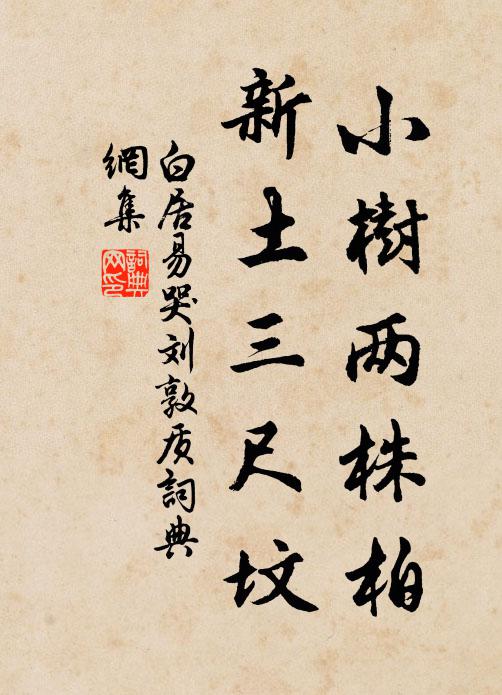 小樹两株柏
新土三尺坟
白居易哭刘敦质詞典
網集
詞典
网印